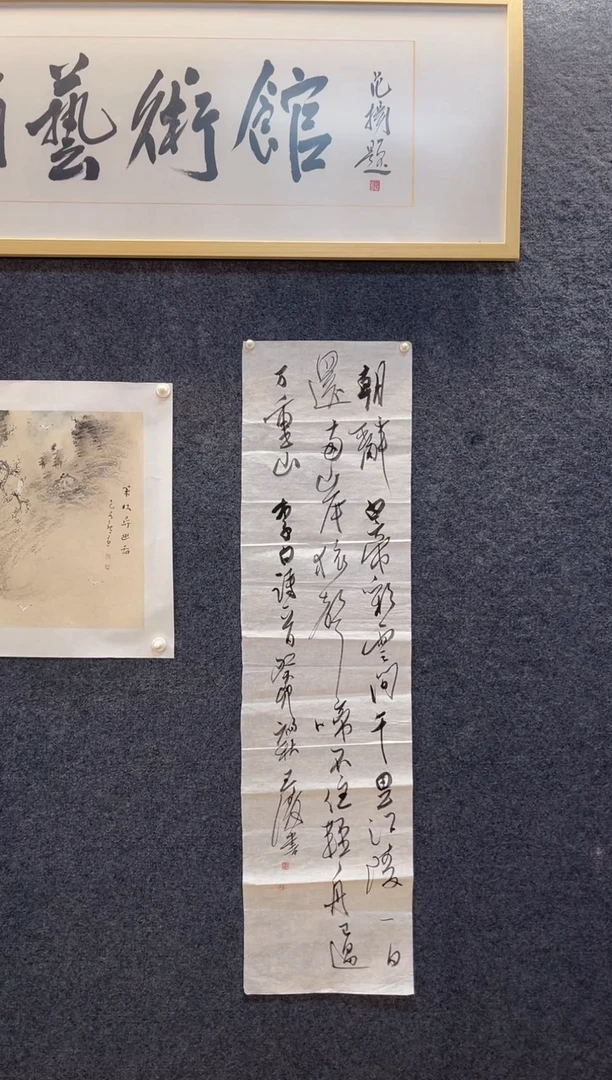 藝術館
朝辭白帝彩雲間千里江陵一日
還兩岸猿聲啼不住輕舟已過
万重山 李白詩一首癸卯 秋王 書